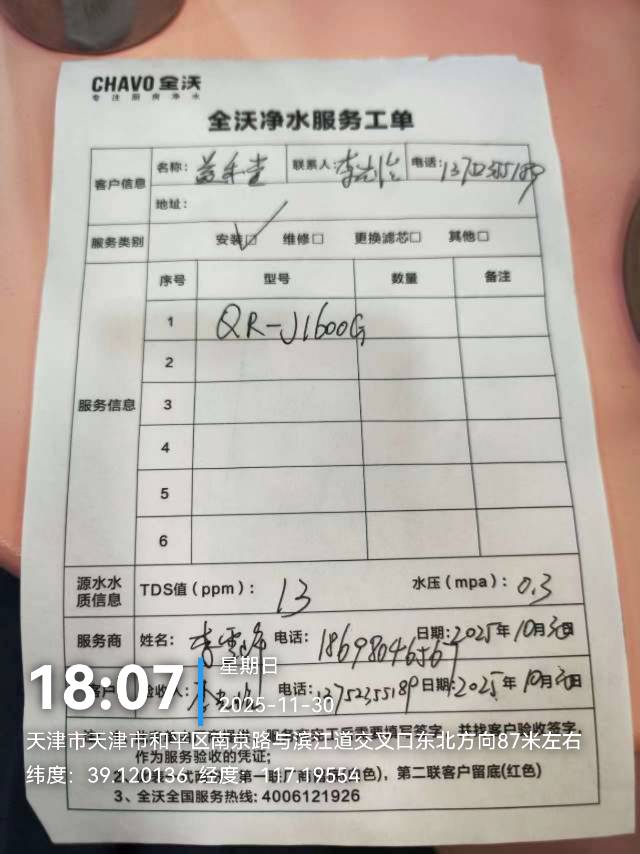 CHAVO 全沃
专注厨房净水
全沃净水服务工单
客户信息 名称: 益禾堂 联系人: 电话:
地址:
服务类别 安装☑ 维修□ 更换滤芯□ 其他□
服务信息 序号 型号 数量 备注
1 QR-J1600G
2
3
4
5
6
源水水质信息 TDS值(ppm): 13 水压(mpa): 0.3
服务商 姓名: 电话: 18698046567 日期: 2025年10月30日
客户 验收人: 电话: 13752355189 日期: 2025年10月30日
签字,并找客户验收签字
作为服务验收的凭证;
第一联 色),第二联客户留底(红色)
3、全沃全国服务热线: 4006121926
18:07
星期日
2025-11-30
天津市天津市和平区南京路与滨江道交叉口东北方向87米左右
纬度: 39.120136 经度: 117.19554